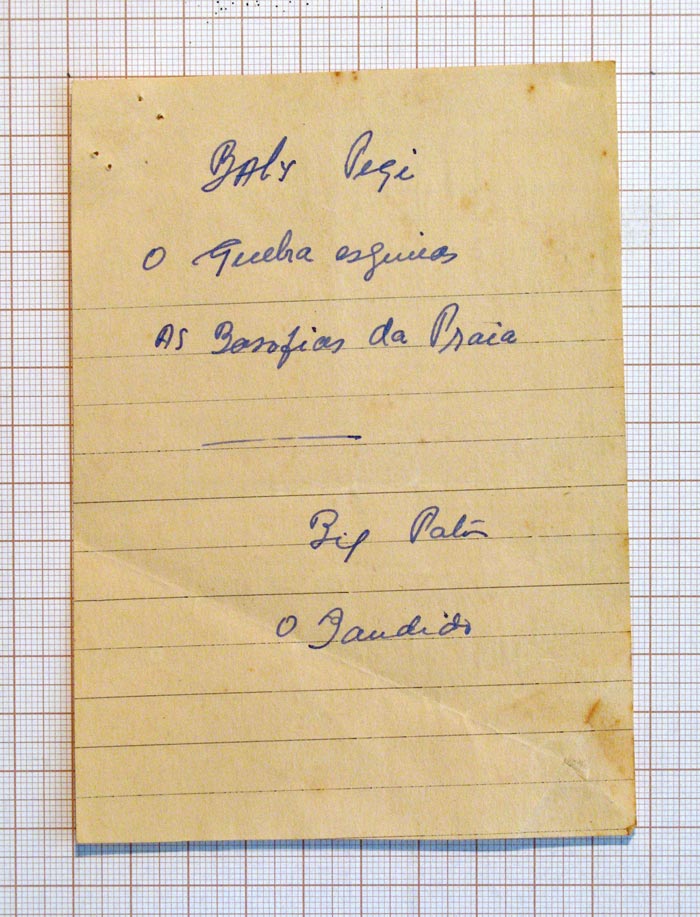 BAby Pegi
O Quebra esquinas
AS Basofias da Praia
Big Patão
O Bandido